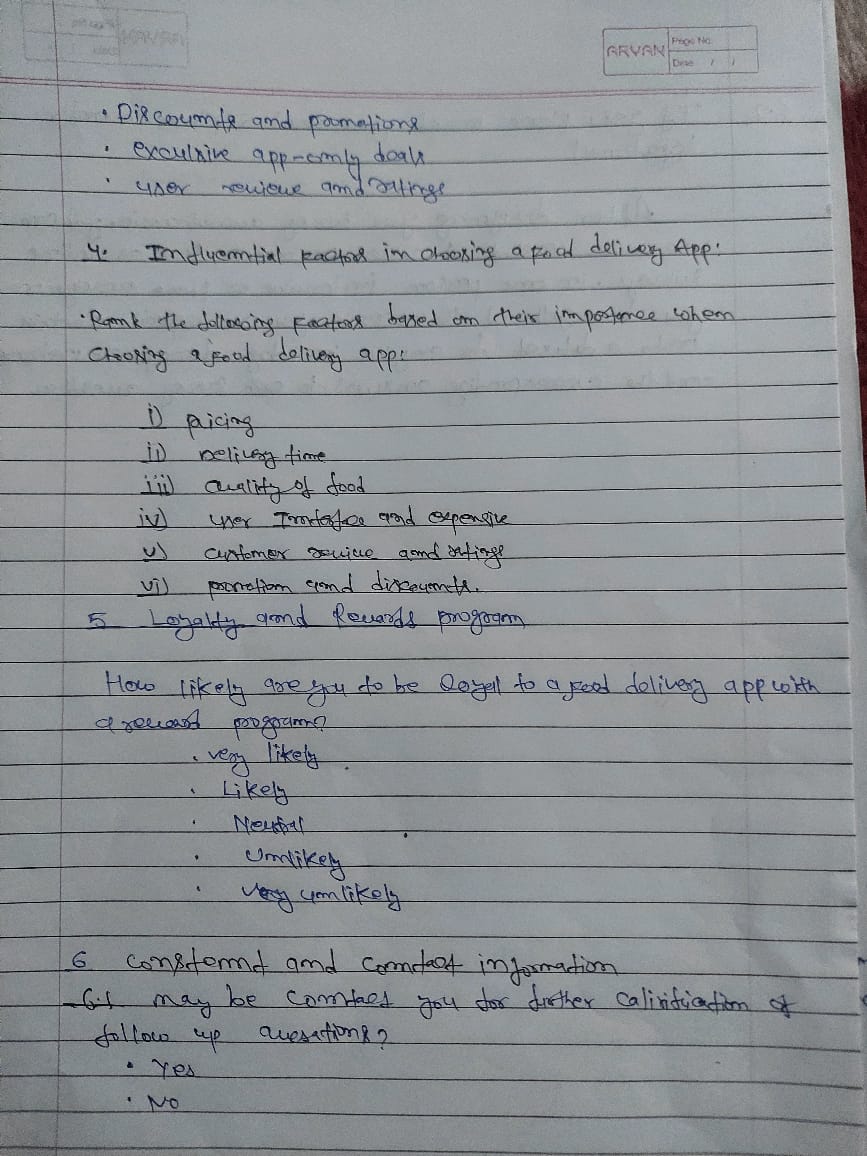 ARYAN Page No.
Date / /
• Discounts and pramotions
• exculsive app-only deals
• user reviewe and ratings
4. Influenntial factors in choosing a food delivery App:
• Rank the following factors based on their importance when
choosing a food delivery app:
i) pricing
ii) Delivery time
iii) Quality of food
iv) user Interface and expensive
v) customer review and ratings
vi) promotion and discounts.
5 Loyalty and Rewards program
How likely are you to be loyal to a food delivery app with
a reward program?
• very likely
• Likely
• Neutral
• Unlikely
• very unlikely
6 Constennt and contact information
6.1 may be contact you for further calirification of
follow up quesations?
• Yes
• No